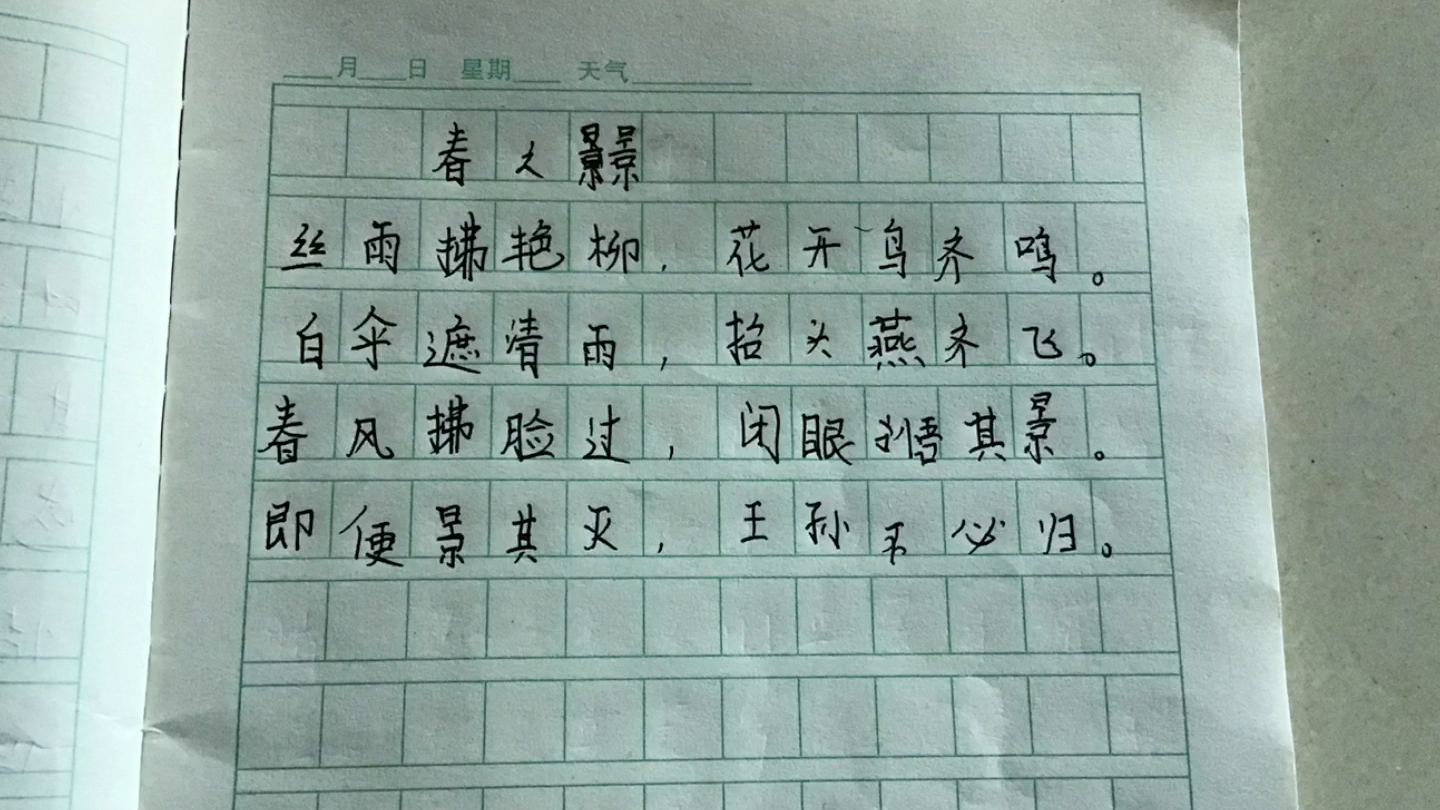 月 日 星期 天气
春之景
丝雨拂艳柳，花开鸟齐鸣。
白伞遮清雨，抬头燕齐飞。
春风拂脸过，闭眼悟其景。
即便景其灭，王孙不必归。